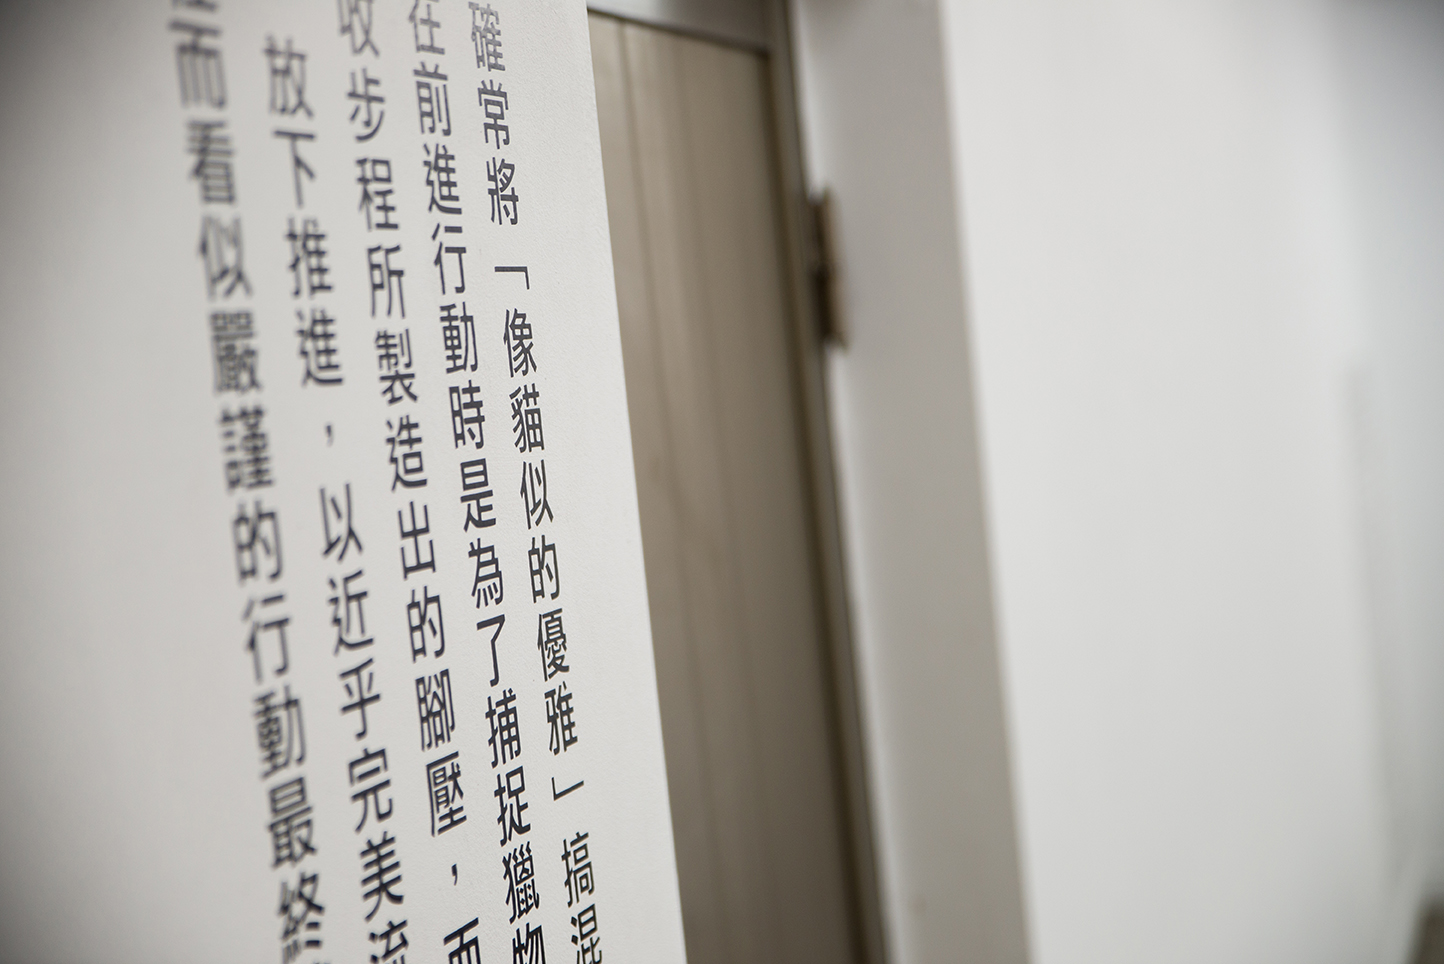 確常將「像貓似的優雅」搞混
在前進行動時是為了捕捉獵物
收步程所製造出的腳壓，而
放下推進，以近乎完美流
而看似嚴謹的行動最終